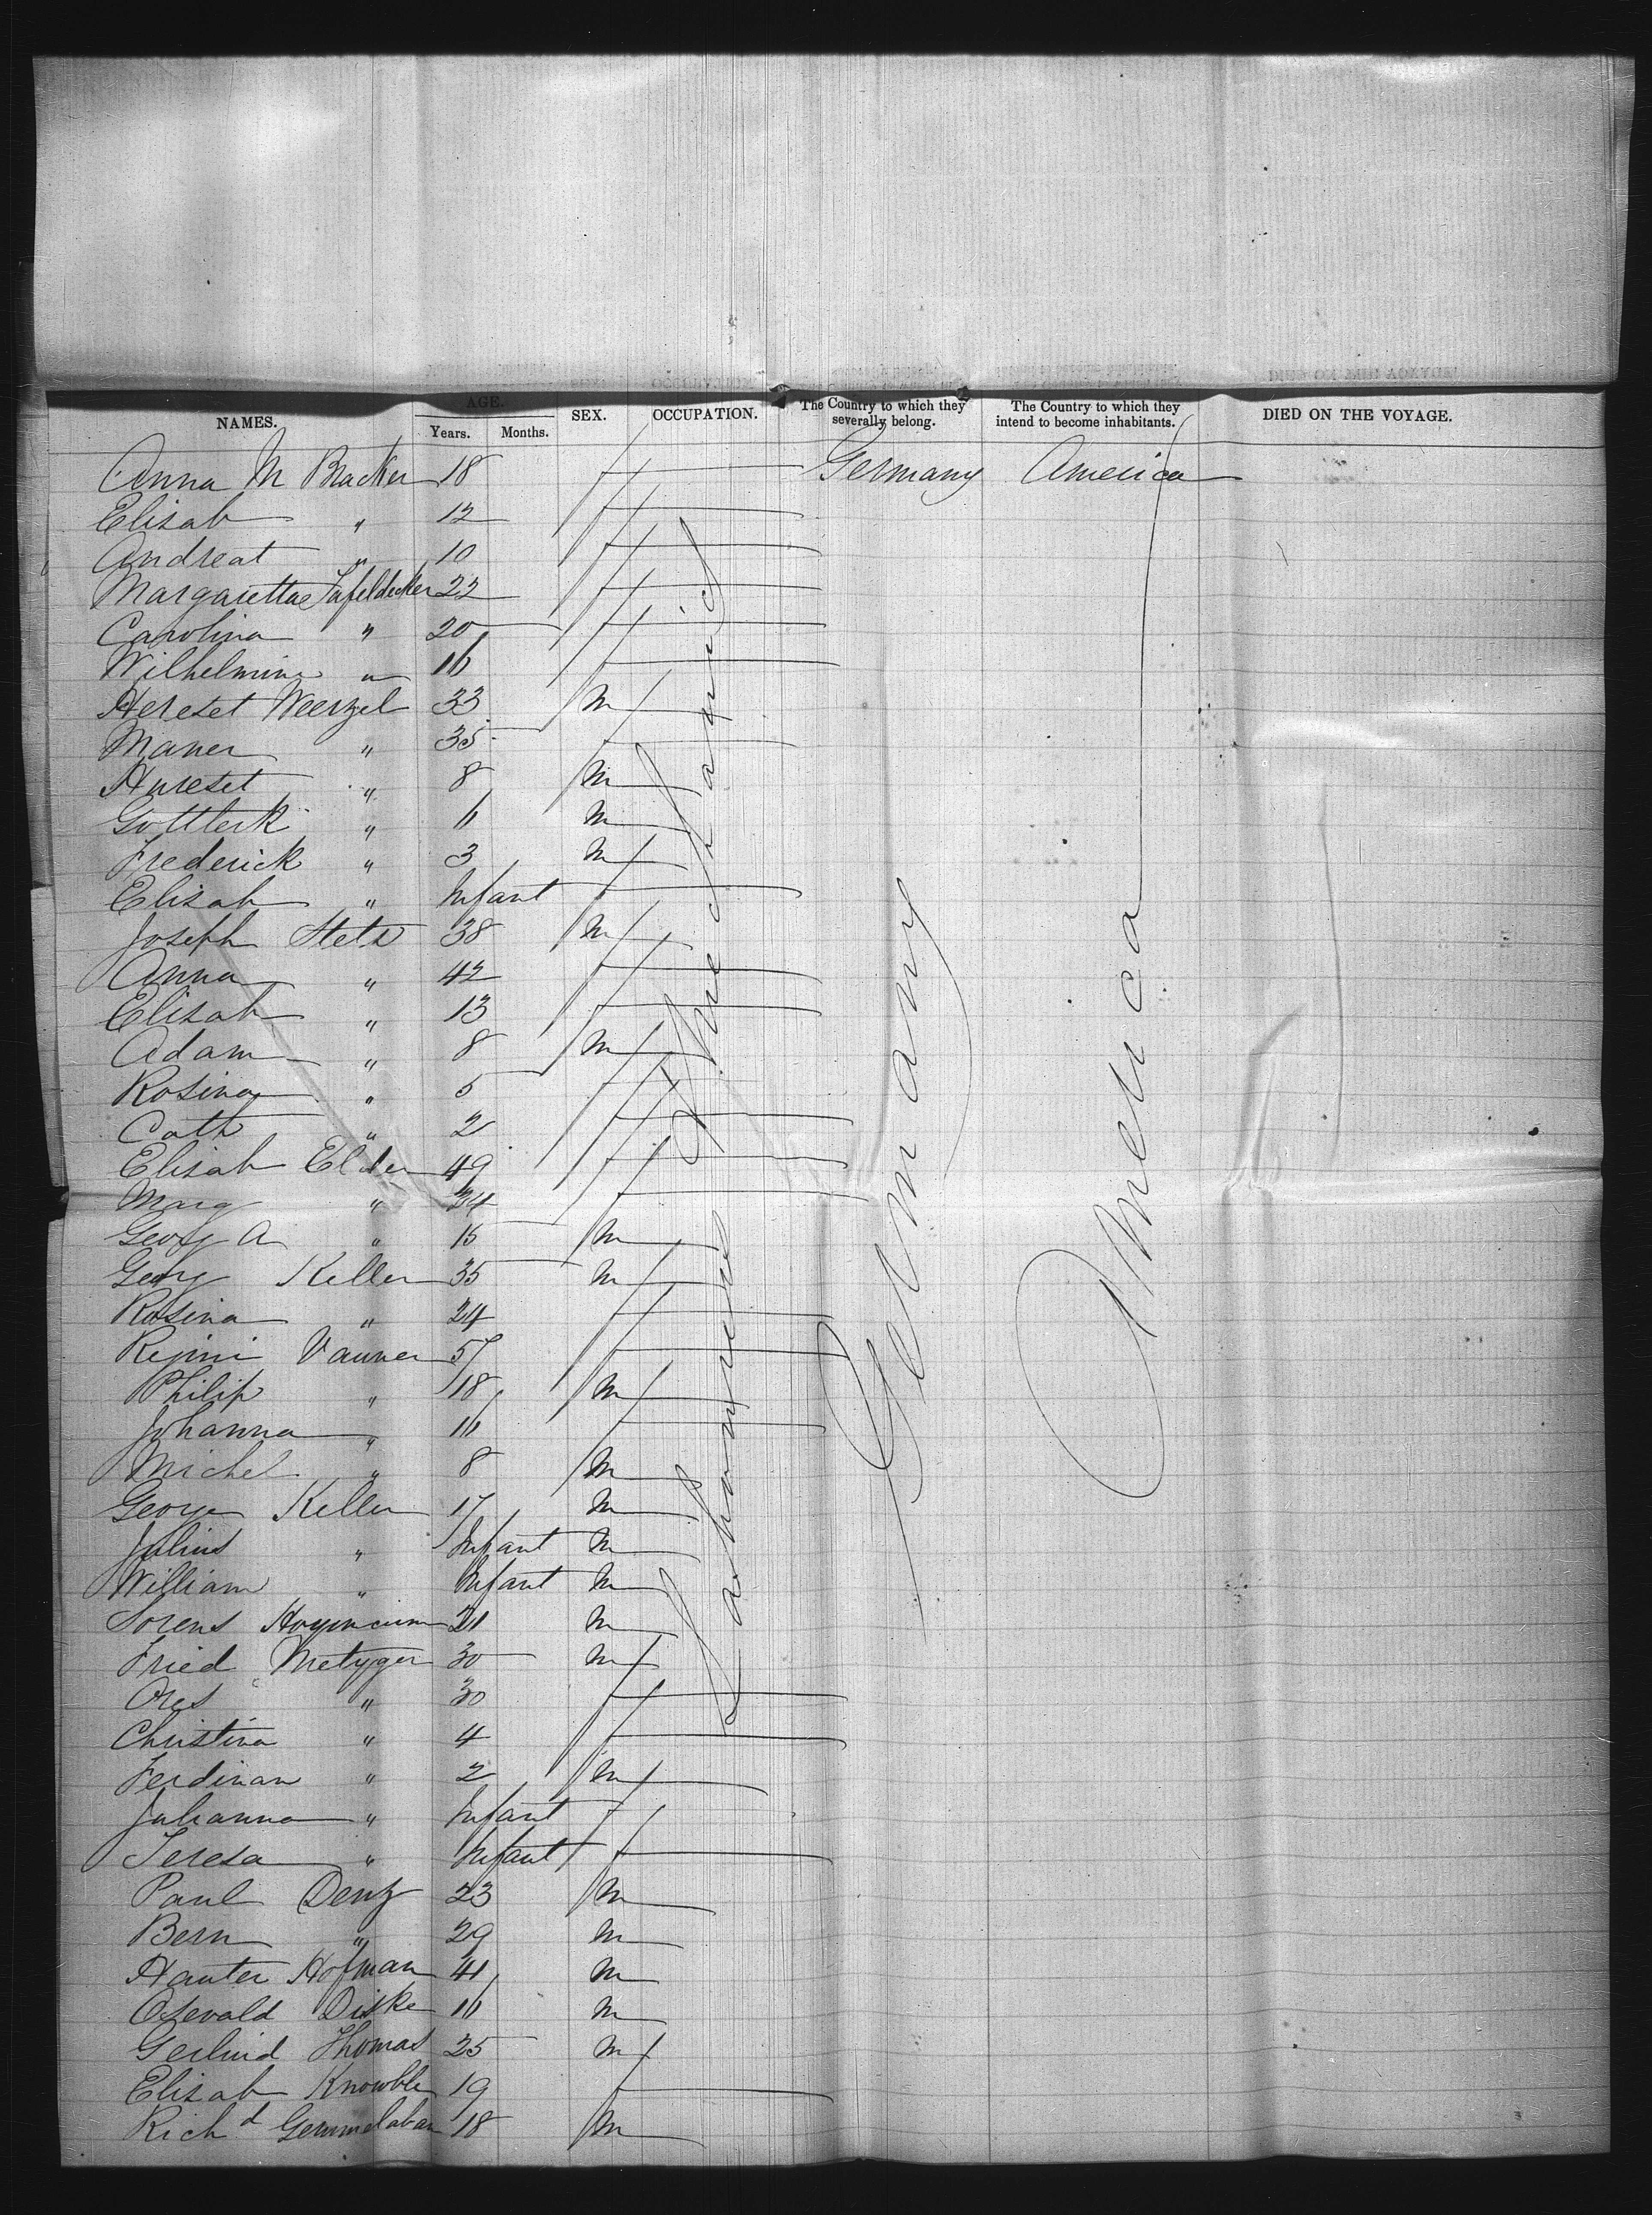 NAMES. AGE. SEX. OCCUPATION. The Country to which they severally belong. The Country to which they intend to become inhabitants. DIED ON THE VOYAGE.
Years. Months.
Anna M Bracker 18 f Germany America
Elisab " 12 f
Andreat " 10 f
Margarettae Tafeldecker 22 f
Carolina " 20 f
Wilhelmina " 16 f
Hereset Weerzel 33 m
Maner " 35 f
Hureset " 8 m
Gottlerk " 6 m
Frederick " 3 m
Elisab " Infant f
Joseph Stetz 38 m
Anna " 42 f
Elisab " 13 f
Adam " 8 m
Rosina " 5 f
Cath " 2 f
Elisab Elder 49 f
Marg " 24 f
Georg A " 15 m
Georg Keller 35 m
Rosina " 24 f
Rejini Vanner 57 f
Philip " 18 m
Johanna " 16 f
Michel " 8 m
George Keller 17 m
Julius " Infant m
William " Infant m
Sorens 21 m
Fried Metyger 30 m
Ores " 30 f
Christina " 4 f
Ferdinan " 2 m
Johanna " Infant f
Teresa " Infant f
Paul Denz 23 m
Bern " 29 m
Hanter Hofman 41 m
Osevald Diske 16 m
Gerlind Thomas 25 m
Elisab Knowble 19 f
Richd Gemmelaban 18 m
Labourers & Mechanics
Germany
America